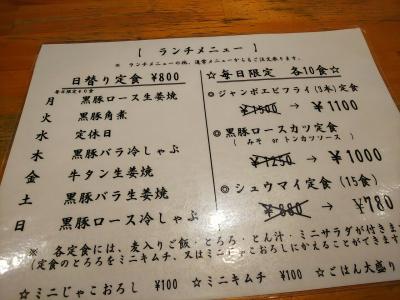 [ ランチメニュー ]
※ ランチメニューの他、通常メニューからもご注文承ります。
日替り定食 ¥800
毎日限定20食
月 黒豚ロース生姜焼
火 黒豚角煮
水 定休日
木 黒豚バラ冷しゃぶ
金 牛タン生姜焼
土 黒豚バラ生姜焼
日 黒豚ロース冷しゃぶ
☆毎日限定 各10食☆
◎ジャンボエビフライ(3本)定食
¥1500 → ¥1100
◎黒豚ロースカツ定食
( みそ or トンカツソース )
¥1250 → ¥1000
◎シュウマイ定食 (15食)
¥980 → ¥780
※ 各定食には、麦入りご飯・とろろ・とん汁・ミニサラダが付きます
(定食のとろろをミニキムチ、又はミニじゃこおろしにかえることができます
☆ミニじゃこおろし ¥100 ☆ミニキムチ ¥100 ☆ごはん大盛り